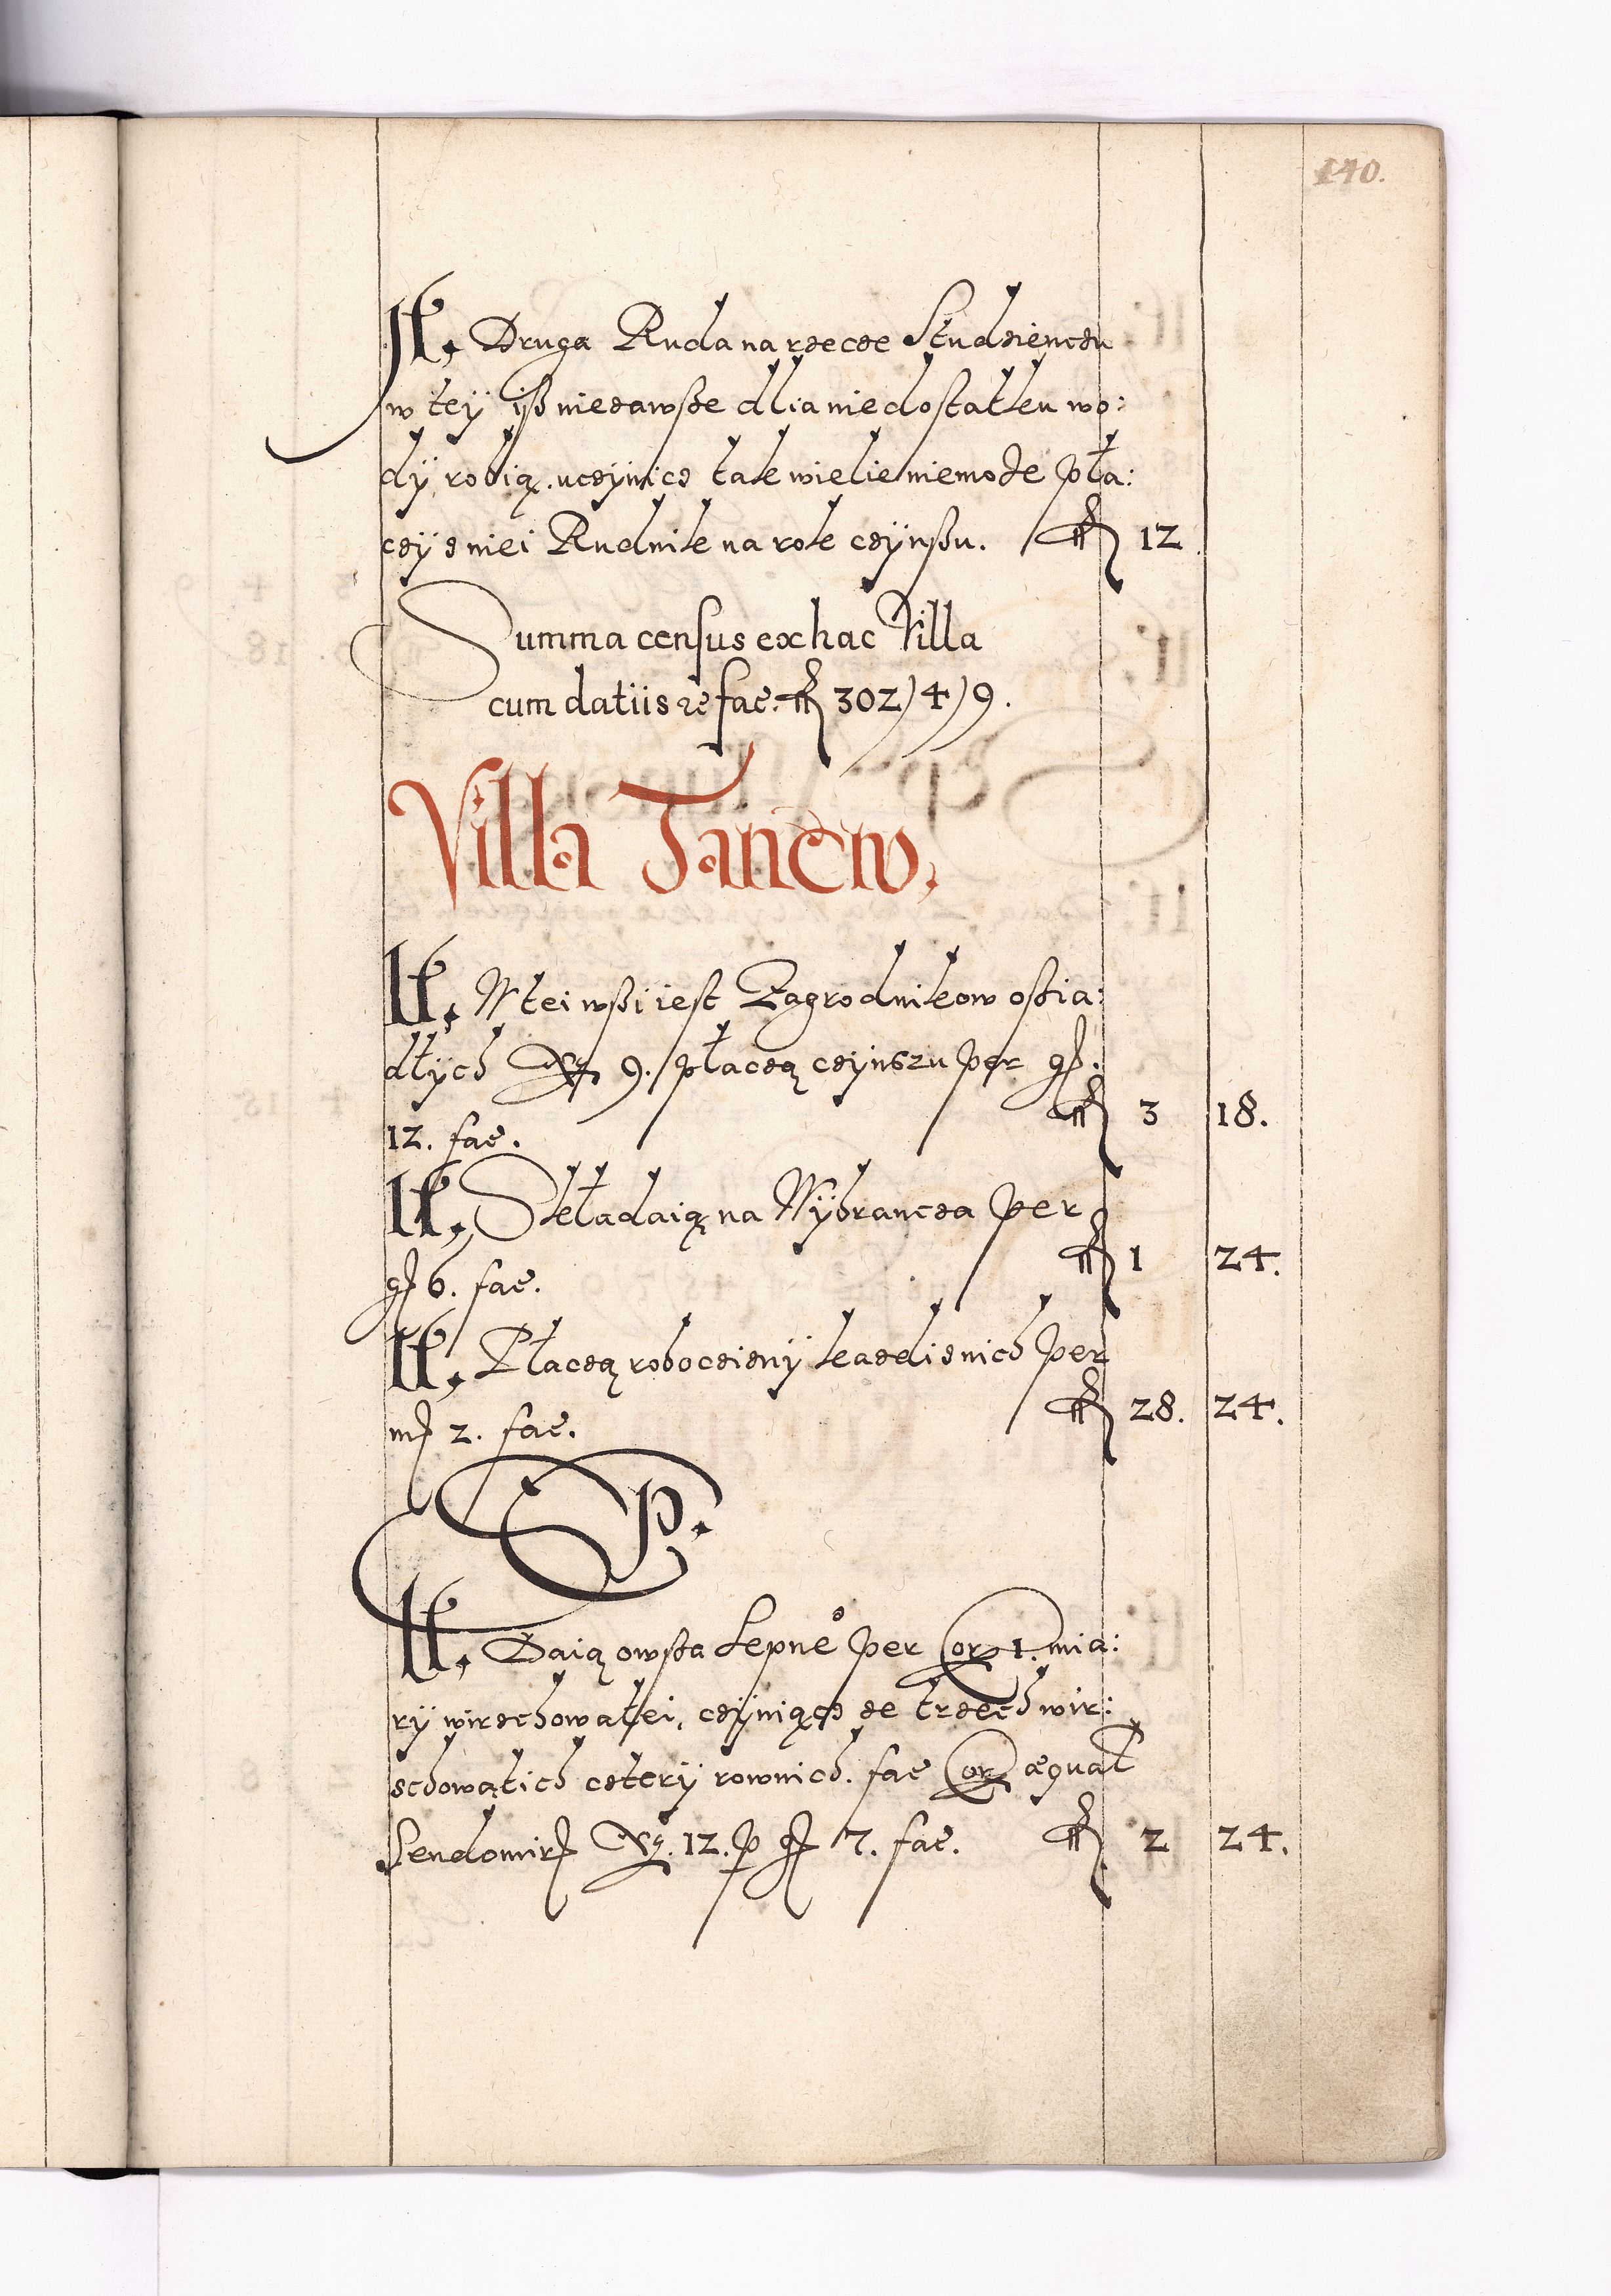 140.
It. Druga Ruda na rzecze Studzienczu
w tey isz niezawsze dlia niedostatku wo:
dÿ robią. ucżÿnicz tak wielie niemoże pła:
czÿ z niei Rudnik na rok czÿnszu. fl 12
Summa census ex hac Villa
cum datiis &c fac. fl 302) 4) 9.
Villa Tanew.
It. W tei wsi iest Zagrodnikow osia:
dłych No 9. płaczą czÿnszu per gr.
12. fac. fl 3 18.
It. Składaią na Wÿbrancza per
gr 6. fac. fl 1 24.
It. Płaczą roboczizny kazdi z nich per
mr 2. fac. fl 28. 24.
P.
It. Daią owsa sepne° per Cor 1. mia:
rÿ wirzchowatei, czÿniącz ze trzech wir:
zchowatich czterÿ rownich. fac Cor æqual
Sendomir No. 12. p gr 7. fac. fl 2 24.